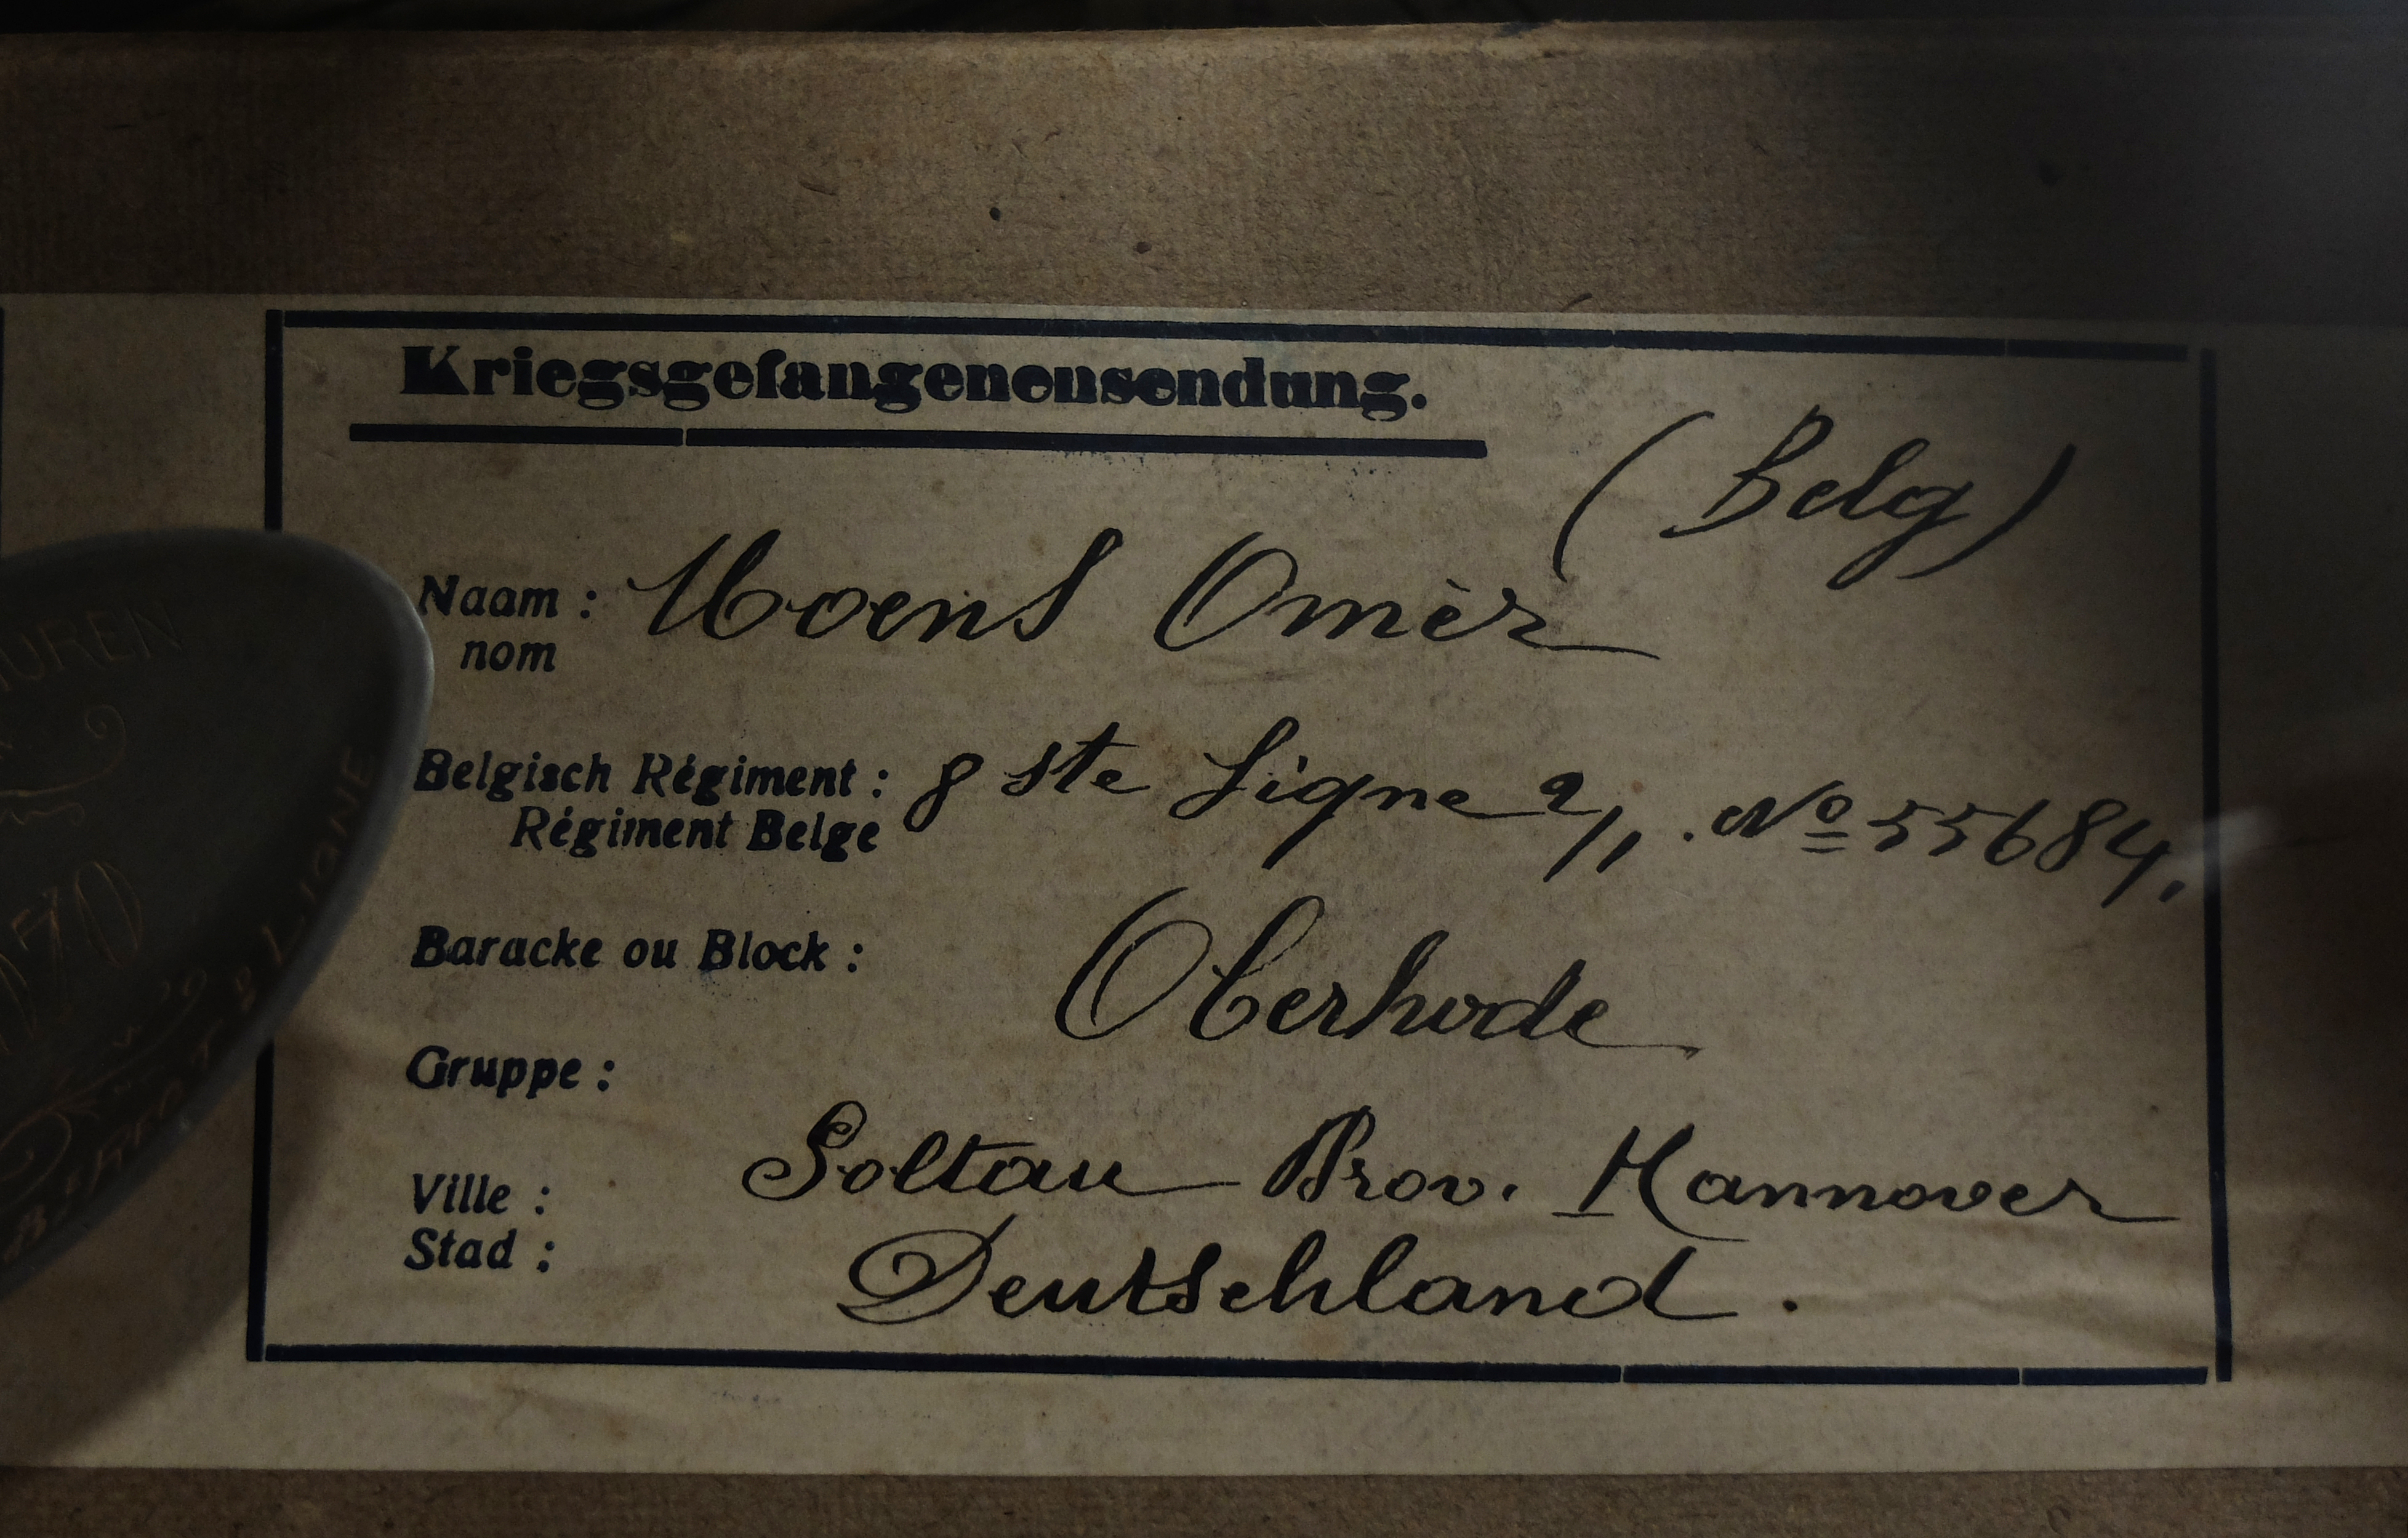 Kriegsgefangenensendung.
(Belg)
Naam : Moens Omèr
nom
Belgisch Régiment : 8 ste Ligne 2/1. Nº 55684.
Régiment Belge
Baracke ou Block : Oberhode
Gruppe :
Ville : Soltau Prov. Hannover
Stad : Deutschland.
UREN
70
LIGNE